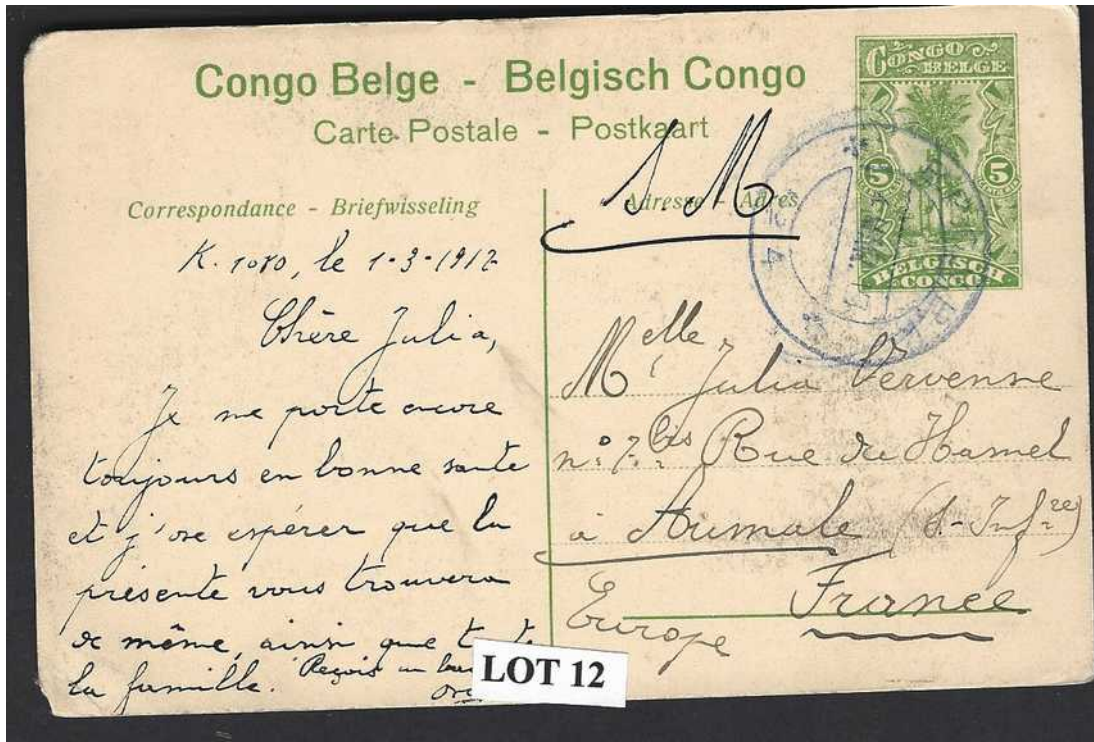 Congo Belge - Belgisch Congo
Carte Postale - Postkaart
CONGO
BELGE
5 5
BELGISCH
CONGO
S. M
Correspondance - Briefwisseling
Adresse - Adres
le 1-3-1912
Chère Julia,
Je me porte encore
toujours en bonne sante
et j'ose espérer que la
présente vous trouvera
de même, ainsi que
la famille. Reçois un
Melle Julia Vervenne
no 7 bis Rue du Hamel
à Aumale (S-Infre)
France
Europe
LOT 12